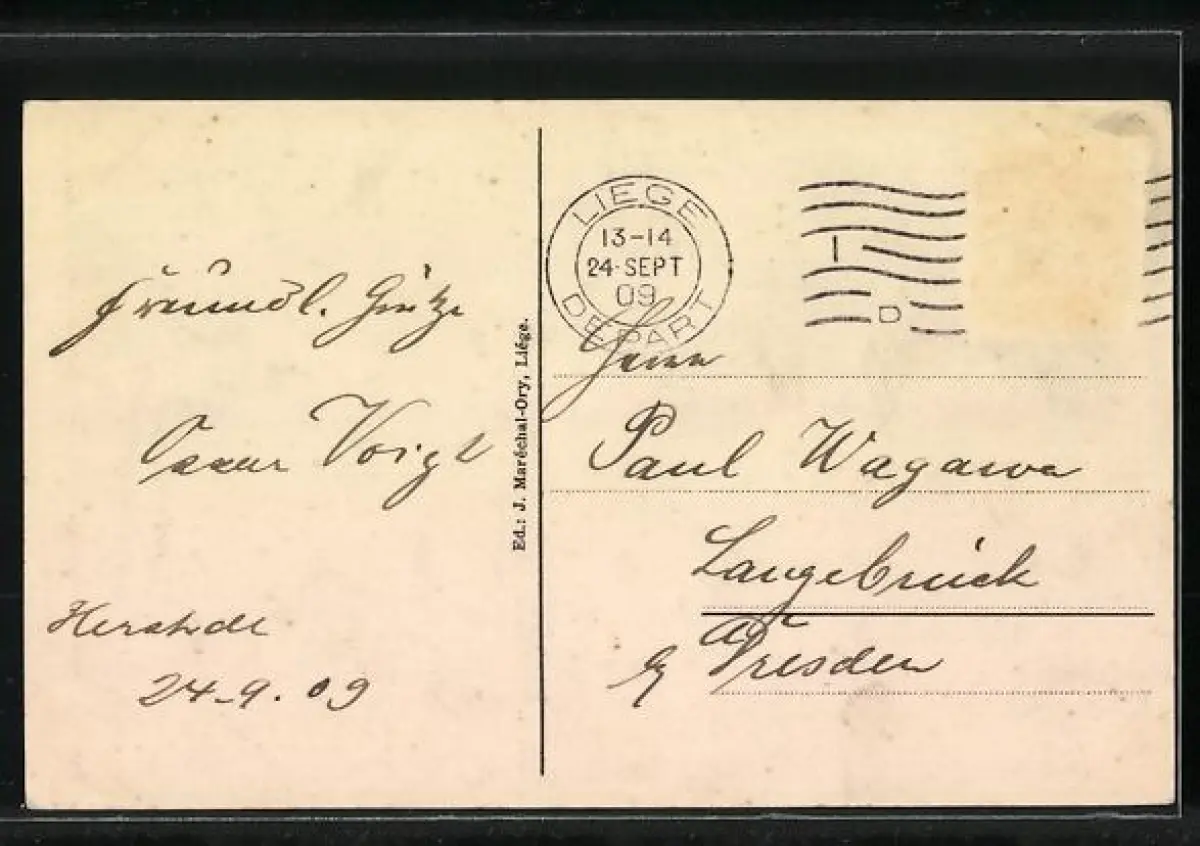 Freundl. Grüße
Oscar Voigt
24-9.09
Ed.: J. Maréchal-Ory, Liége.
LIEGE
13-14
24·SEPT
09
DEPART
I
D
Herrn
Paul
Langebrück
Dresden